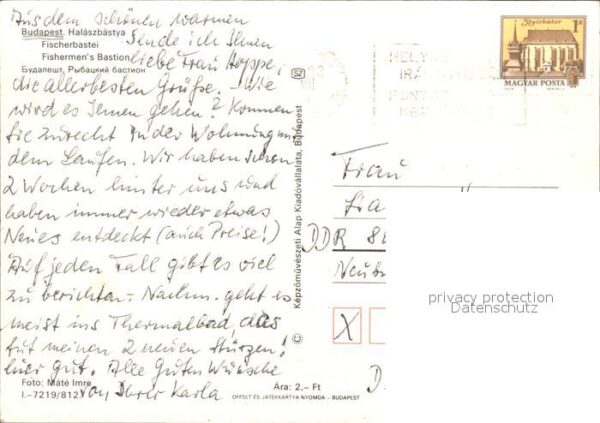 Aus dem schönen warmen
Budapest, Halászbástya
Fischerbastei
Fishermen's Bastion
Будапешт, Рыбацкий бастион
sende ich Ihnen
liebe Frau Hoppe,
die allerbesten Grüße. - Wie
wird es Ihnen gehen? Kommen
Sie zurecht in der Wohnung mit
dem Laufen. Wir haben schon
2 Wochen hinter uns und
haben immer wieder etwas
Neues entdeckt (auch Preise!)
Auf jeden Fall gibt es viel
zu berichten. - Nachm. geht es
meist ins Thermalbad, das
tut meinen 2 neuen
hier gut. Alle Guten Wünsche
Foto: Máté Imre
I.-7219/812
von Ihrer Karla
Ára: 2.- Ft
OFFSET ÉS JÁTÉKKÁRTYA NYOMDA - BUDAPEST
© Képzőművészeti Alap Kiadóvállalata, Budapest
SZ
Nyírbátor
1Ft
MAGYAR POSTA
HELYES
Frau
DDR 8
Neub
X
D
privacy protection
Datenschutz